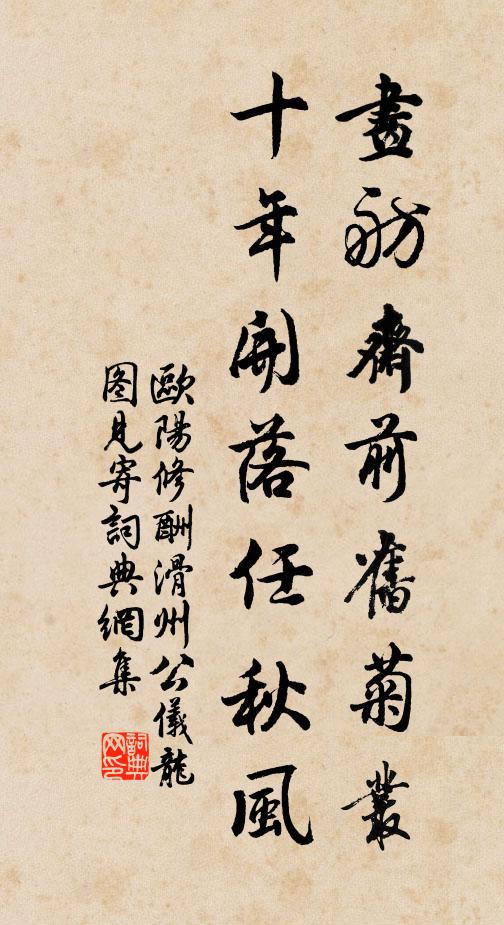 畫舫齋前舊菊叢
十年開落任秋風
歐陽修酬滑州公儀龍
圖見寄詞典網集
詞典網印